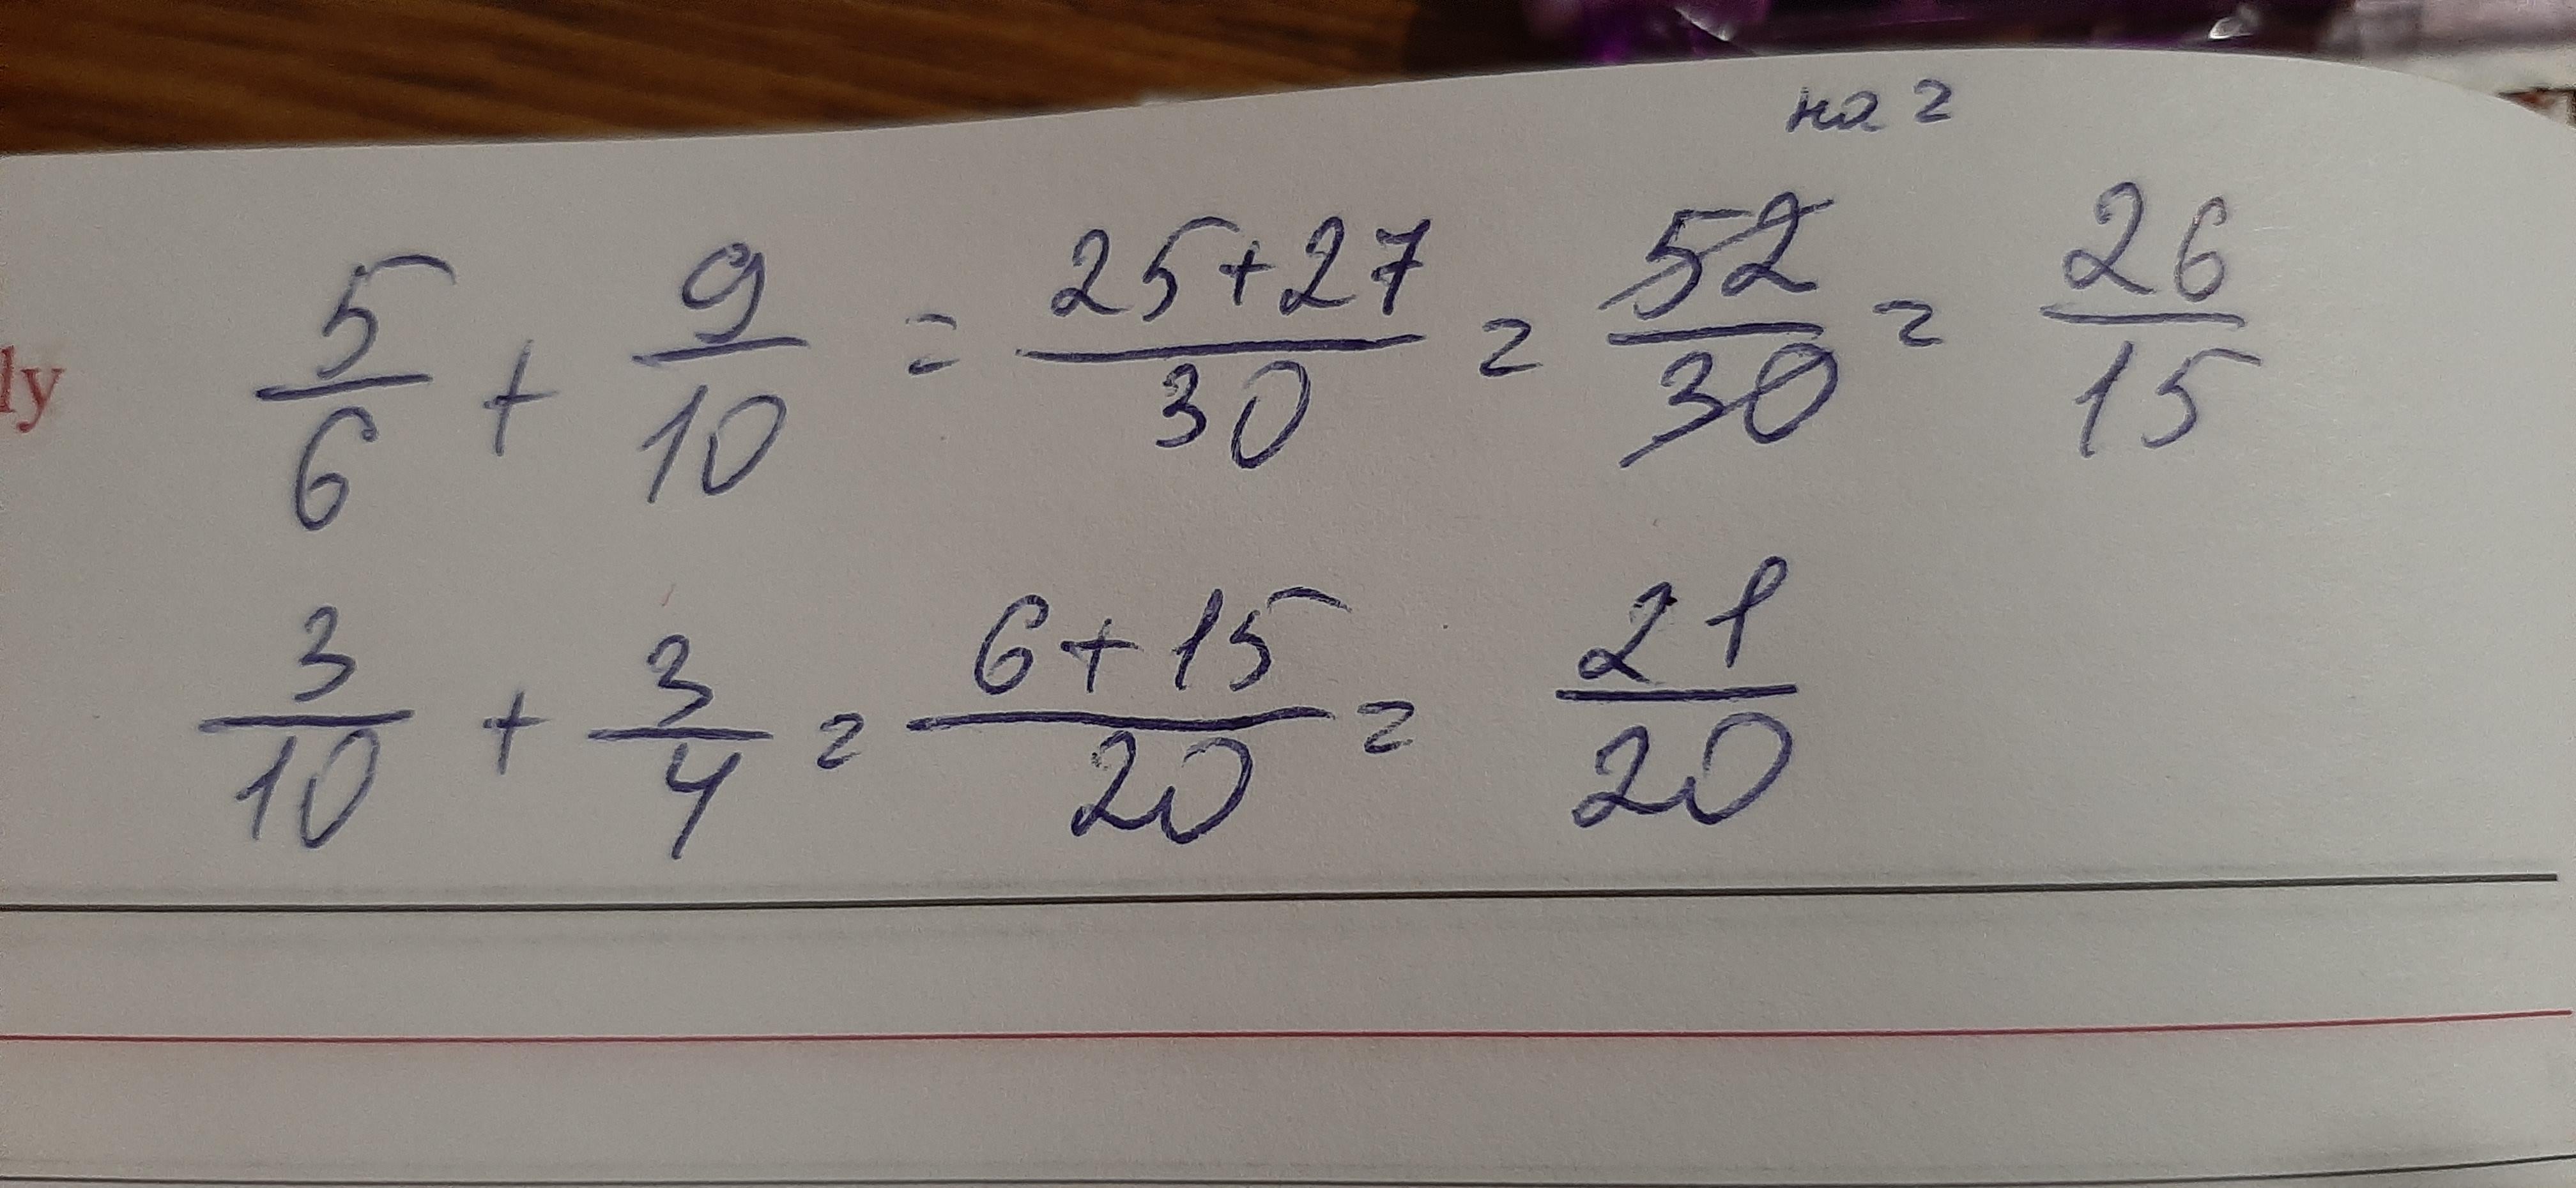 на 2
5/6 + 9/10 = 25+27/30 = 52/30 = 26/15
ly
3/10 + 3/4 = 6+15/20 = 21/20